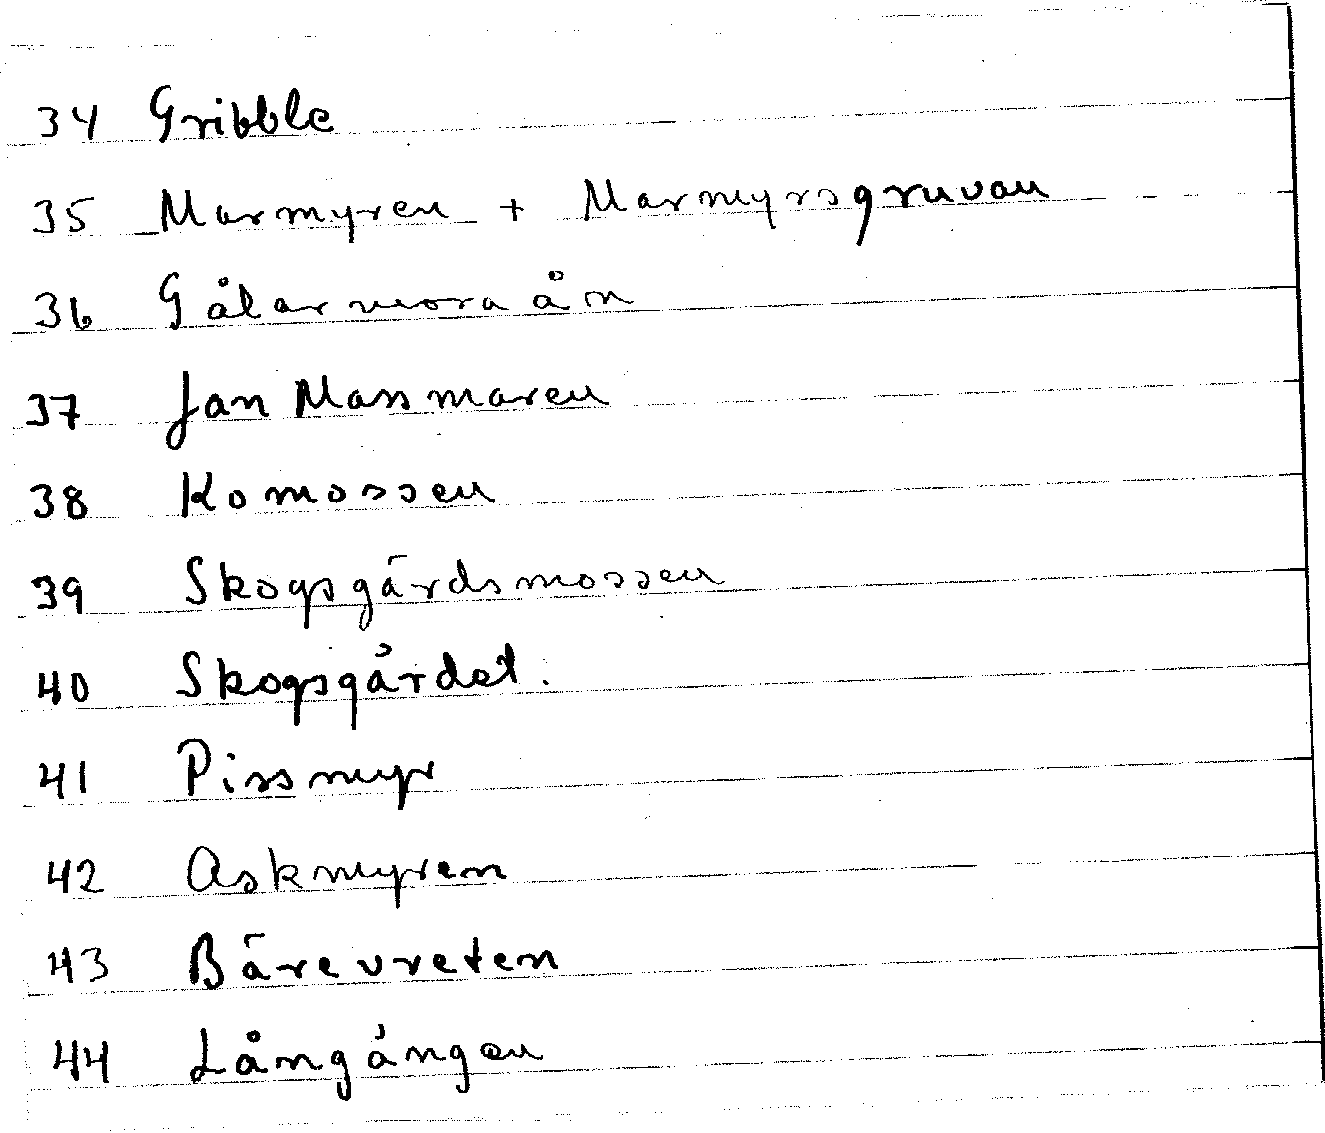 34 Gribble
35 Marmyren + Marmyrsgruvan
36 Gålarmoraån
37 Jan Massmaren
38 Komossen
39 Skogsgärdsmossen
40 Skogsgårdet.
41 Pissmyr
42 Askmyren
43 Bärevreten
44 Långången